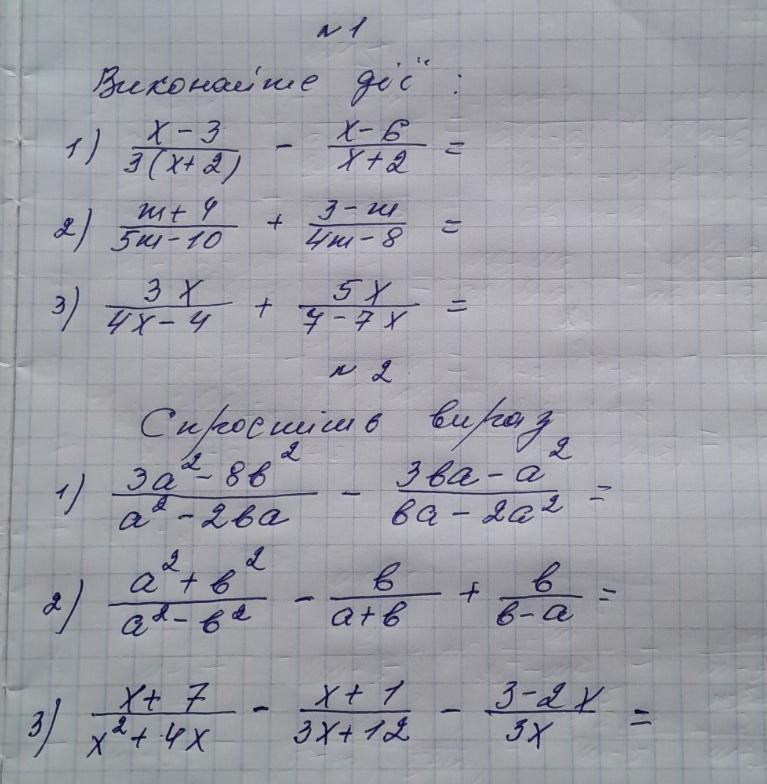 №1
Виконайте дії:
1) (x-3)/(3(x+2)) - (x-6)/(x+2) =
2) (m+4)/(5m-10) + (3-m)/(4m-8) =
3) 3x/(4x-4) + 5x/(7-7x) =
№2
Спростіть вираз
1) (3a²-8в²)/(a²-2вa) - (3вa-a²)/(вa-2a²) =
2) (a²+в²)/(a²-в²) - в/(a+в) + в/(в-a) =
3) (x+7)/(x²+4x) - (x+1)/(3x+12) - (3-2x)/3x =